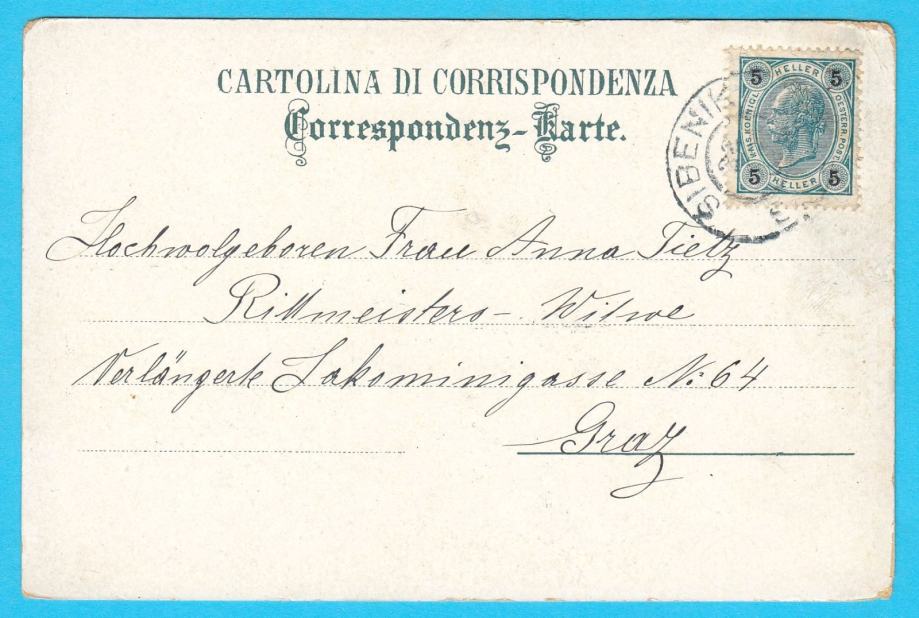 CARTOLINA DI CORRISPONDENZA
Correspondenz-Karte.
5 HELLER 5
KAIS. KOENIGL. OESTERR. POST.
5 HELLER 5
SIBENIK
Hochwolgeboren Frau Anna Tietz
Rittmeisters- Witwe
Verlängerte Jakominigasse No: 64
Graz